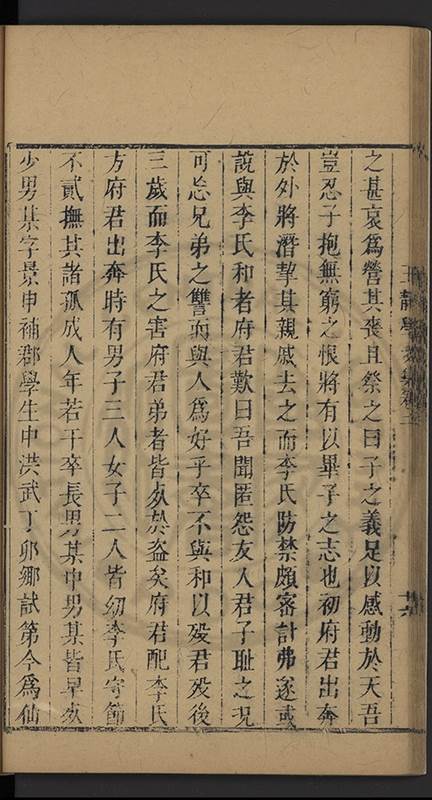 之甚哀為營其喪且祭之曰子之義足以感動於天吾
豈忍子抱無窮之恨將有以畢子之志也初府君出奔
於外將潛挈其親戚去之而李氏防禁頗密計弗遂或
說與李氏和者府君歎曰吾聞匿怨友人君子耻之況
可忘兄弟之讐而與人為好乎卒不與和以殁君殁後
三歲而李氏之害府君弟者皆死於盜矣府君配李氏
方府君出奔時有男子三人女子二人皆幼李氏守節
不貳撫其諸孤成人年若干卒長男某中男某皆早死
少男某字景申補郡學生中洪武丁卯鄉試第今為仙